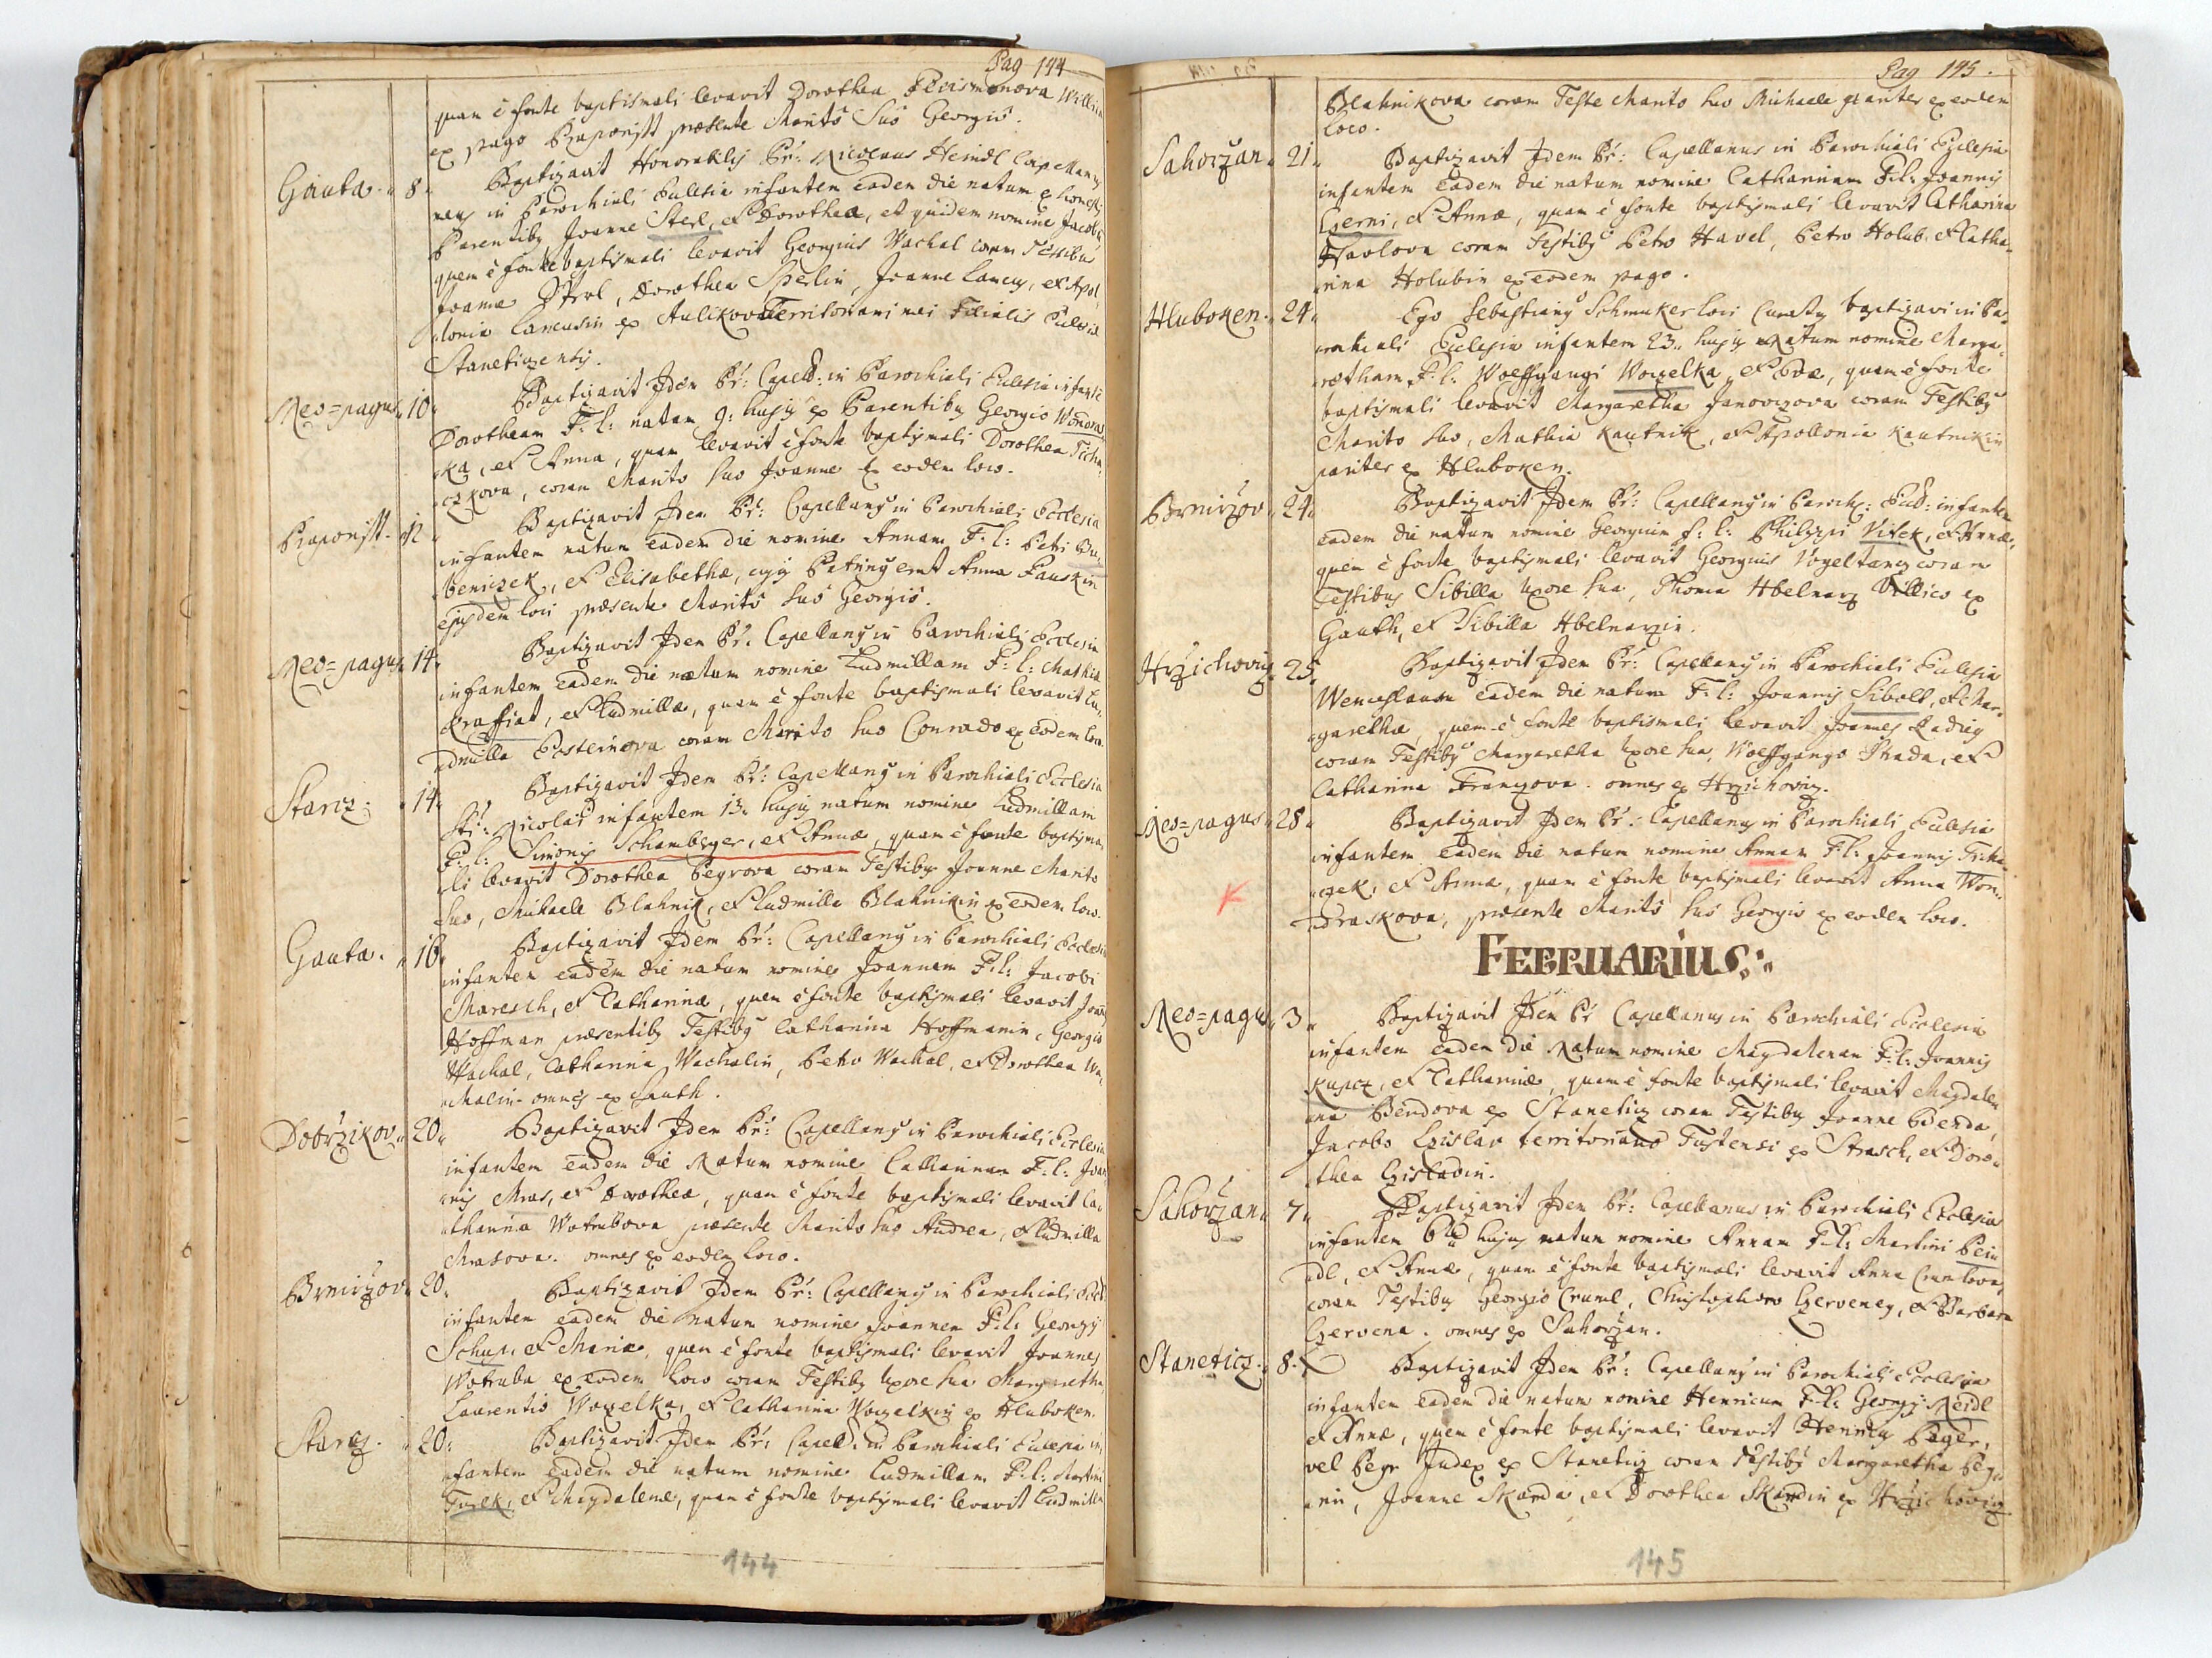 Pag 144
quam è fonte baptismali levavit Dorothea
ex pago præsente Marito Suo Georgio.
Gauta. 8. Baptizavit Honorabilis Pr: Nicolaus Heindl Capellanus
meus in Parochiali Ecclesia infantem eadem die natum ex honestis
Parentibus Joanne Sterl, et Dorothea, et quidem nomine Jacobus
quem è fonte baptismali levavit Georgius Wachal coram Testibus
Joanne Sterl, Dorothea Sterlin, Joanne Lancus, et Apol
lonia ex Aulikova Territoriani mei Filialis Ecclesiæ
Stanetizensis.
Neo=pagus 10. Baptizavit Idem Pr: Capell: in Parochiali Ecclesia infante
Dorotheam F: l: natam 9: hujus ex Parentibus Georgio Wondras
ka, et Anna, quam levavit è fonte baptismali Dorothea Ticha
czkova, coram Marito suo Joanne ex eodem loco.
12 Baptizavit Idem Pr: Capellanus in Parochiali Ecclesia
infantem natum eadem die nomine Annam F: l: Petri Bu
beniczek, et Elisabethæ, cujus Patrinus erat Anna Pauskin
ejusdem loci præsente Marito suo Georgio.
Neo=pagus 14. Baptizavit Idem Pr: Capellanus in Parochiali Ecclesia
infantem eadem die natum nomine Ludmillam F: l: Mathiæ
et Ludmillæ, quam è fonte baptismali levavit Lu
dmilla coram Marito suo Conrado ex eodem loco.
Starcz. 14. Baptizavit Idem Pr: Capellanus in Parochiali Ecclesia
Sti: Nicolai infantem 13. hujus natum nomine Ludmillam
F: l: Simonis Schamberger, et Annæ quam è fonte baptisma
li levavit Dorothea Pegrova coram Testibus Joanne Marito
suo, Michaele Blahnik, et Ludmilla Blahnikin ex eodem loco.
Gauta. 16. Baptizavit Idem Pr: Capellanus in Parochiali Ecclesia
infantem eadem die natum nomine Joannem F: l: Jacobi
Maresch, et Catharinæ, quem è fonte baptismali levavit
Hoffman præsentibus Testibus Catharina Hoffmanin, Georgio
Wachal, Catharina Wachalin, Petro Wachal, et Dorothea Wa
chalin omnes ex Gauth.
Dobrzikov 20. Baptizavit Idem Pr: Capellanus in Parochiali Ecclesia
infantem eadem die Natum nomine Catharinam F: l: Joan
nis Mras, et Dorotheæ, quam è fonte baptismali levavit Ca
tharina Wotrubova præsente Marito suo Andrea, et Ludmilla
Mrasova. omnes ex eodem loco.
Brnirzov 20. Baptizavit Idem Pr: Capellanus in Parochiali
infantem eadem die natum nomine Joannem F: l: Georgii
Schup, et Mariæ, quem è fonte baptismali levavit Joannes
Wotruba ex eodem loco coram Testibus Uxore sua Margaretha
Laurentio Wowelka, et Catharina ex Hluboken.
Starcz. 20. Baptizavit Idem Pr: Capell: in Parochiali Ecclesia in
fantem eadem die natum nomine Ludmillam F: l: Martini
Turek, et Magdalenæ, quam è fonte baptismali levavit Ludmilla
144
Pag 145.
Blahnikova coram Teste Marito suo Michaele pariter ex eodem
loco.
Sahorzan. 21. Baptizavit Idem Pr: Capellanus in Parochiali Ecclesia
infantem eadem die natum nomine Catharinam F: l: Joannis
Czerni, et Annæ, quam è fonte baptismali levavit Catharina
Havlova coram Testibus Petro Havel, Petro Holub, et Catha
rina Holubin ex eodem pago.
Hluboken. 24. Ego Sebastianus Schmuker loci Curatus baptizavi in Pa
rochiali Ecclesia infantem 23. hujus Natum nomine Marga
retham F: l: Wolffgangi Wowelka, et Evæ, quam è fonte
baptismali levavit Margaretha Janovczova coram Testibus
Marito suo, Mathia Kautnik, et Apollonia Kautnikin
pariter ex Hluboken.
Brnirzov 24. Baptizavit Idem Pr: Capellanus in Paroch: Eccl: infantem
eadem die natum nomine Georgium f: l: Philippi Vitek, et Annæ,
quem è fonte baptismali levavit Georgius Vogeltancz coram
Testibus Sibilla Uxore sua, Thoma Hbelnarz Villico ex
Gauth, et Sibilla Hbelnarzin.
Hrzichovicz 25. Baptizavit Idem Pr: Capellanus in Parochiali Ecclesia
Wenceslaum eadem die natum F: l: Joannis Sibell, et Mar
garethæ, quem è fonte baptismali levavit Joannes Ladig
coram Testibus Margaretha Uxore sua, Wolffgango Skada, et
Catharina Franzova. omnes ex Hrzichovicz.
Neo=pagus 28. Baptizavit Idem Pr: Capellanus in Parochiali Ecclesia
infantem eadem die natum nomine Annam F: l: Joannis Ticha
czek, et Annæ, quam è fonte baptismali levavit Anna Won
draskova, præsente Marito suo Georgio ex eodem loco.
FEBRUARIUS:
Neo=pagus 3. Baptizavit Idem Pr Capellanus in Parochiali Ecclesia
infantem eadem die Natum nomine Magdalenam F: l: Joannis
Kupcz, et Catharinæ, quam è fonte baptismali levavit Magdale
na Bendova ex Staneticz coram Testibus Joanne Benda,
Jacobo Czislar territoriano Tustensi ex Strasch, et Doro
thea Czislarin.
Sahorzan. 7. Baptizavit Idem Pr: Capellanus in Parochiali Ecclesia
infantem 6ta hujus natum nomine Annam F: l: Martini Pein
dl, et Annæ, quam è fonte baptismali levavit Anna Crumlova,
coram Testibus Georgio Cruml, Christophoro Czerveney, et Barbara
Czervena. omnes ex Sahorzan.
Staneticz. 8. Baptizavit Idem Pr: Capellanus in Parochiali Ecclesia
infantem eadem die natum nomine Henricum F: l: Georgii Reidl
et Annæ, quem è fonte baptismali levavit Henricus Pager,
vel Pegr Judex ex Staneticz coram Testibus Margaretha Peg
rin, Joanne Skarda, et Dorothea Skardin ex Hrzichovicz
145